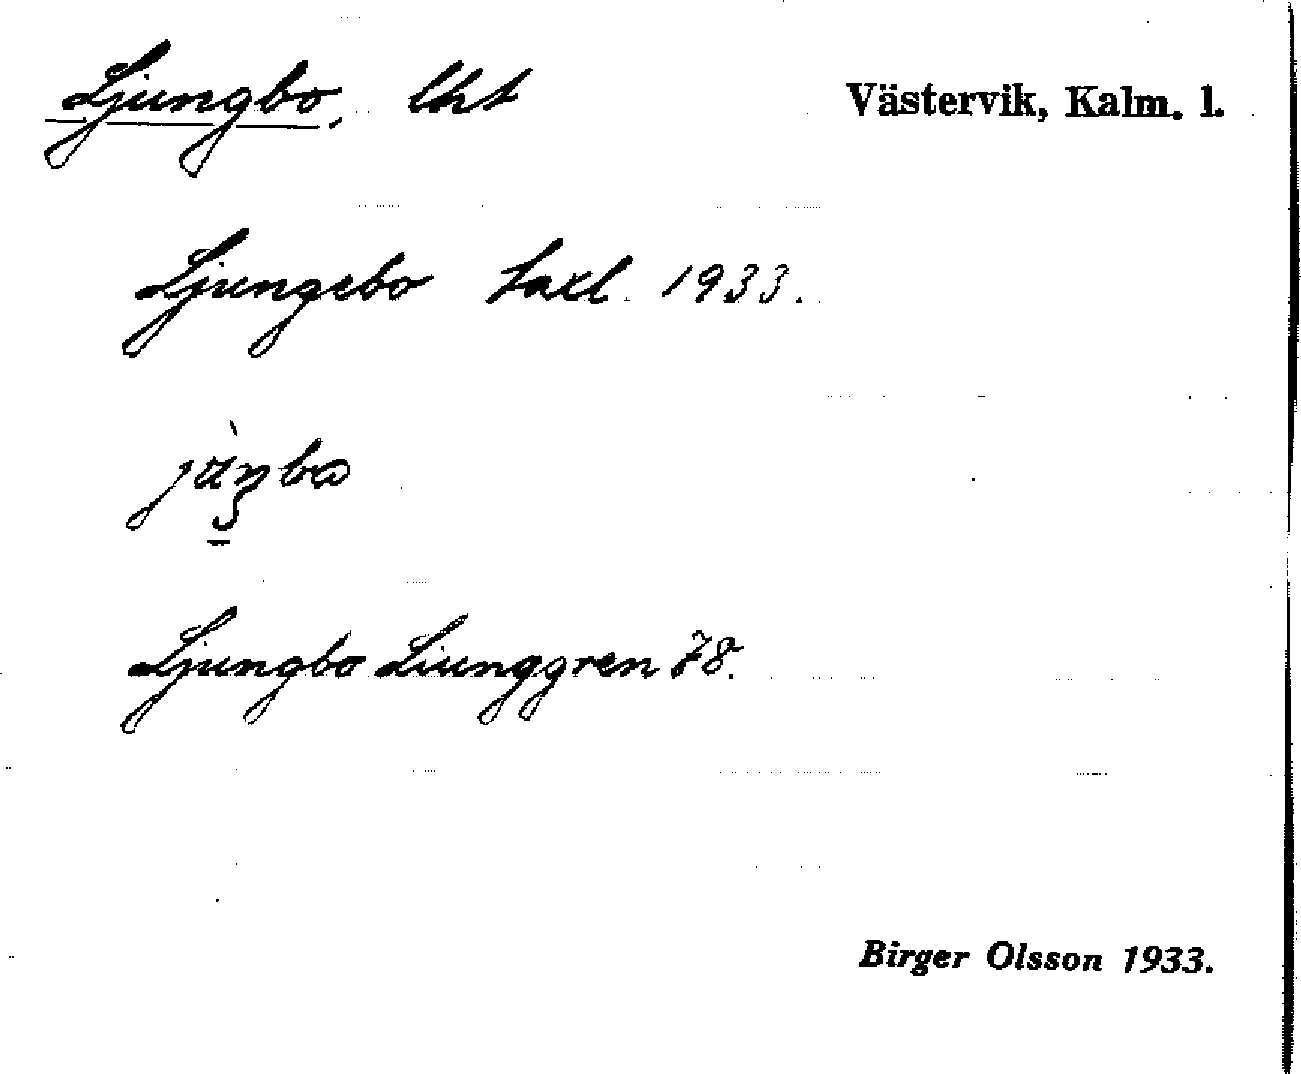 Ljungbo, lht Västervik, Kalm. l.
Ljungebo taxl. 1933.
Ljungbo Liunggren 78.
Birger Olsson 1933.